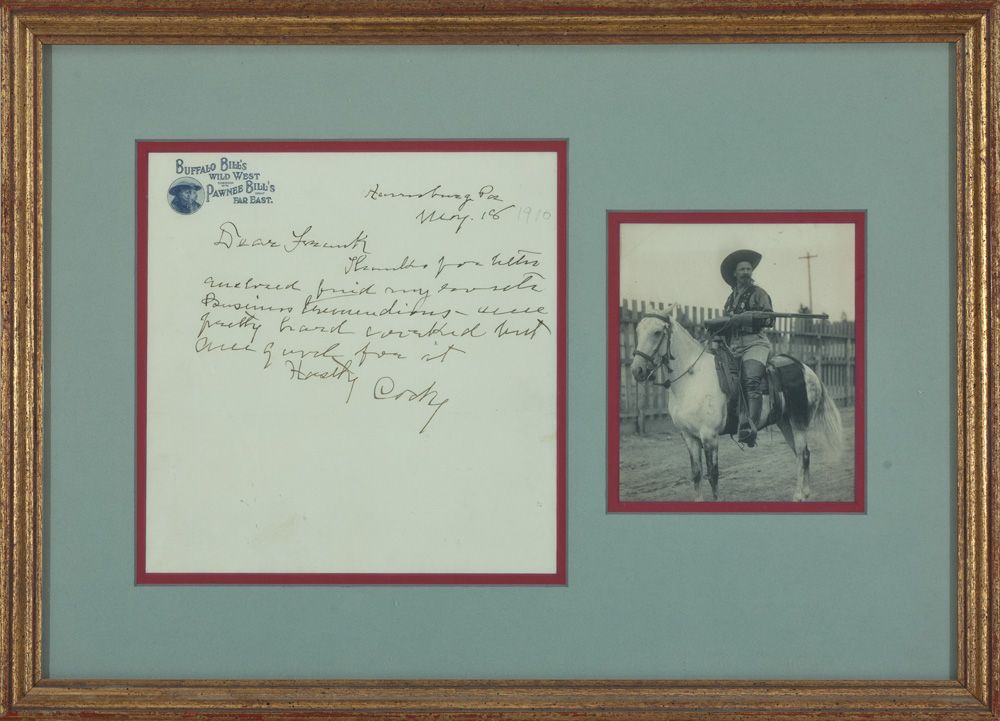 BUFFALO BILL'S
WILD WEST
PAWNEE BILL'S
FAR EAST.
Harrisburg Pa
May. 18 1910
Dear Frank
Thanks for letter
enclosed find my
Business tremendious
pretty hard worked but
am good for it
Hastily
Cody